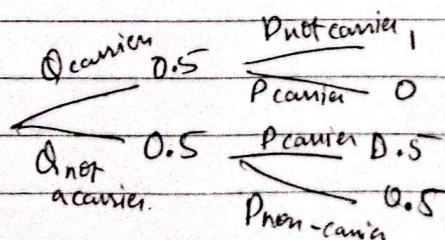 Q carrier 0.5
P not carrier 1
P carrier 0
Q not a carrier. 0.5
P carrier 0.5
P non-carrier 0.5